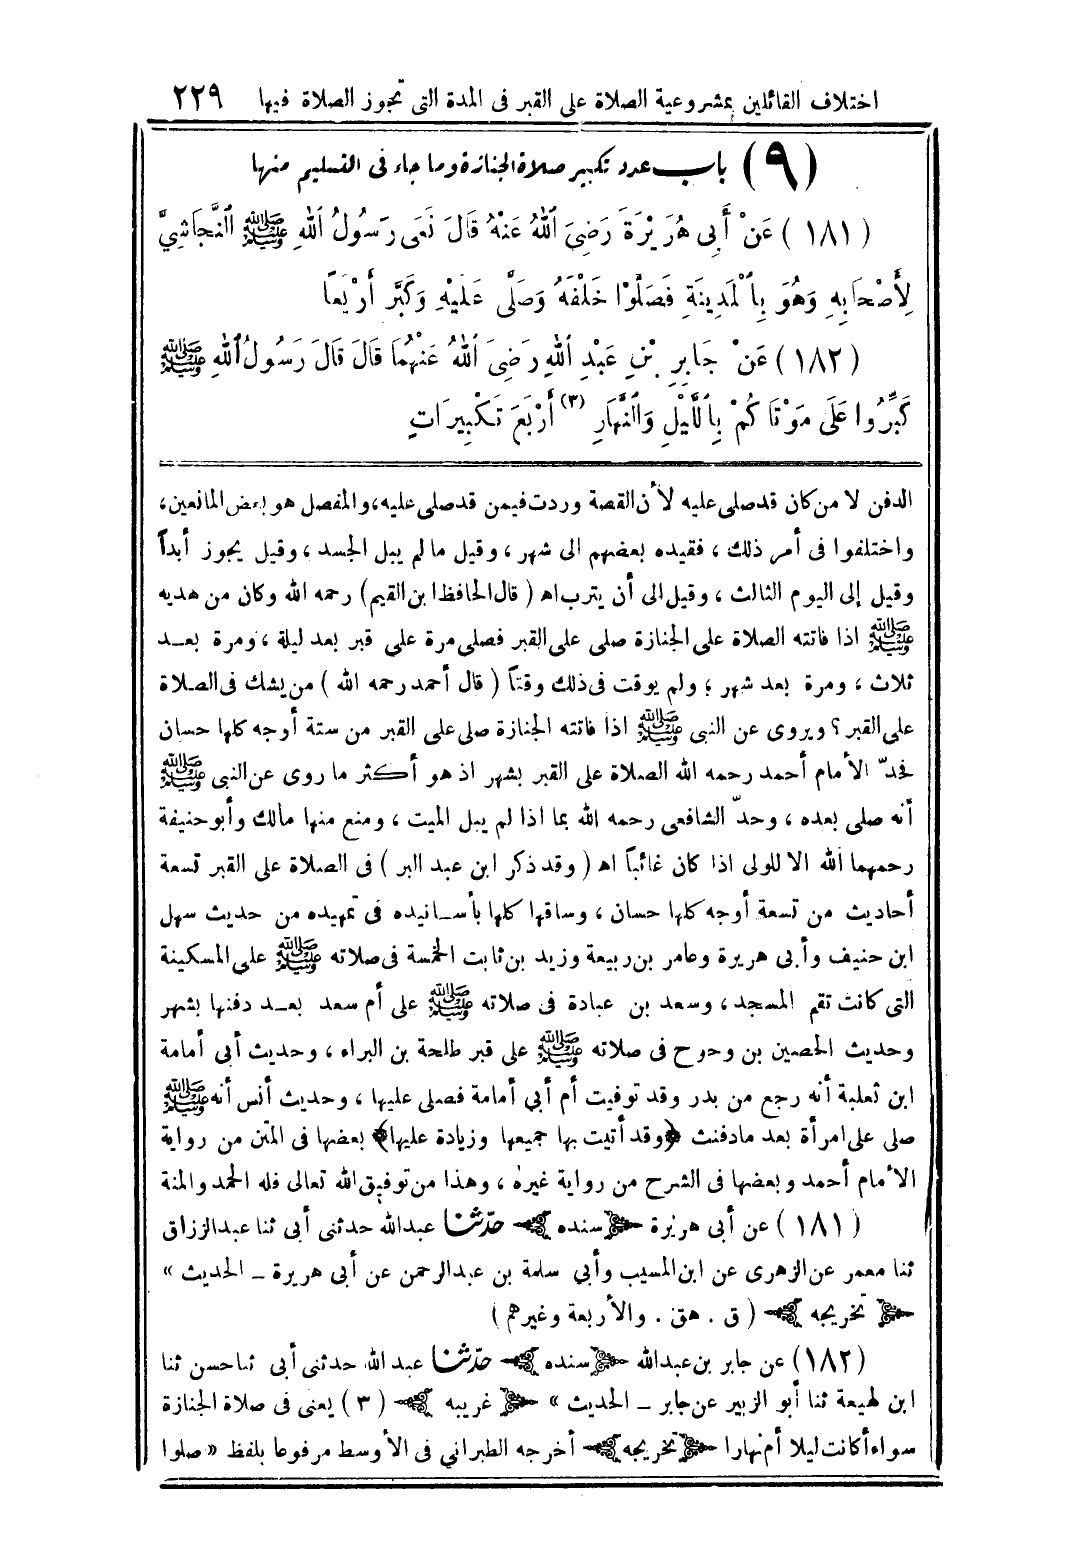 اختلاف القائلين بمشروعية الصلاة على القبر فى المدة التى تجوز الصلاة فيها ٢٢٩
(٩) باب عدد تكبير صلاة الجنازة وما جاء فى التسليم منها
(١٨١) عَنْ أَبِى هُرَيْرَةَ رَضِىَ اللهُ عَنْهُ قَالَ نَعَى رَسُولُ اللهِ ﷺ النَّجَاشِيَّ
لِأَصْحَابِهِ وَهُوَ بِالْمَدِينَةِ فَصَلَّوْا خَلْفَهُ وَصَلَّى عَلَيْهِ وَكَبَّرَ أَرْبَعًا
(١٨٢) عَنْ جَابِرِ بْنِ عَبْدِ اللهِ رَضِىَ اللهُ عَنْهُمَا قَالَ قَالَ رَسُولُ اللهِ ﷺ
كَبِّرُوا عَلَى مَوْتَاكُمْ بِاللَّيْلِ وَالنَّهَارِ (٣) أَرْبَعَ تَكْبِيرَاتٍ
الدفن لا من كان قد صلى عليه لأن القصة وردت فيمن قد صلى عليه، والمفصل هو بعض المانعين،
واختلفوا فى أمر ذلك ، فقيده بعضهم الى شهر ، وقيل ما لم يبل الجسد ، وقيل يجوز أبداً
وقيل إلى اليوم الثالث ، وقيل الى أن يترب اه (قال الحافظ ابن القيم) رحمه الله وكان من هديه
ﷺ اذا فاتته الصلاة على الجنازة صلى على القبر فصلى مرة على قبر بعد ليلة ، ومرة بعد
ثلاث ، ومرة بعد شهر ؛ ولم يوقت فى ذلك وقتاً (قال أحمد رحمه الله) من يشك فى الصلاة
على القبر ؟ ويروى عن النبى ﷺ اذا فاتته الجنازة صلى على القبر من ستة أوجه كلها حسان
فحدّ الأمام أحمد رحمه الله الصلاة على القبر بشهر اذ هو أكثر ما روى عن النبى ﷺ
أنه صلى بعده ، وحدّ الشافعى رحمه الله بما اذا لم يبل الميت ، ومنع منها مالك وأبو حنيفة
رحمهما الله الا للولى اذا كان غائباً اه (وقد ذكر ابن عبد البر) فى الصلاة على القبر تسعة
أحاديث من تسعة أوجه كلها حسان ، وساقها كلها بأسـانيده فى تمهيده من حديث سهل
ابن حنيف وأبى هريرة وعامر بن ربيعة وزيد بن ثابت الخمسة فى صلاته ﷺ على المسكينة
التى كانت تقم المسجد ، وسعد بن عبادة فى صلاته ﷺ على أم سعد بعد دفنها بشهر
وحديث الحصين بن وحوح فى صلاته ﷺ على قبر طلحة بن البراء ، وحديث أبي أمامة
ابن ثعلبة أنه رجع من بدر وقد توفيت أم أبي أمامة فصلى عليها ، وحديث أنس أنه ﷺ
صلى على امرأة بعد ما دفنت ﴿وقد أتيت بها جميعها وزيادة عليها﴾ بعضها فى المتن من رواية
الأمام أحمد وبعضها فى الشرح من رواية غيره ، وهذا من توفيق الله تعالى فله الحمد والمنة
(١٨١) عن أبى هريرة سنده حدّثنا عبدالله حدثنى أبى ثنا عبدالرزاق
ثنا معمر عن الزهرى عن ابن المسيب وأبي سلمة بن عبدالرحمن عن أبى هريرة ـ الحديث »
تخريجه (ق . هق . والأربعة وغيرهم)
(١٨٢) عن جابر بن عبدالله سنده حدّثنا عبد الله حدثنى أبى ثنا حسن ثنا
ابن لهيعة ثنا أبو الزبير عن جابر ـ الحديث » غريبه (٣) يعنى فى صلاة الجنازة
سواء أكانت ليلا أم نهارا تخريجه أخرجه الطبراني فى الأوسط مرفوعا بلفظ « صلوا